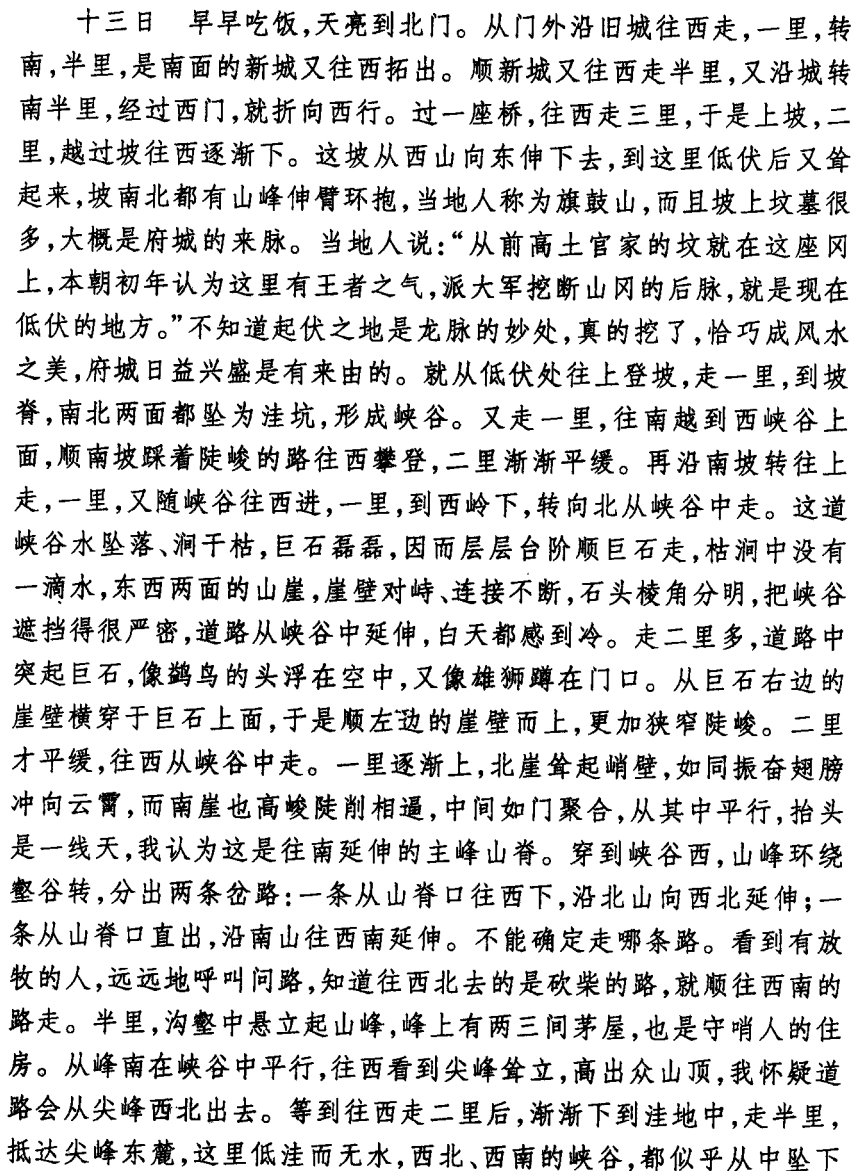 十三日　早早吃饭,天亮到北门。从门外沿旧城往西走,一里,转
南,半里,是南面的新城又往西拓出。顺新城又往西走半里,又沿城转
南半里,经过西门,就折向西行。过一座桥,往西走三里,于是上坡,二
里,越过坡往西逐渐下。这坡从西山向东伸下去,到这里低伏后又耸
起来,坡南北都有山峰伸臂环抱,当地人称为旗鼓山,而且坡上坟墓很
多,大概是府城的来脉。当地人说:“从前高土官家的坟就在这座冈
上,本朝初年认为这里有王者之气,派大军挖断山冈的后脉,就是现在
低伏的地方。”不知道起伏之地是龙脉的妙处,真的挖了,恰巧成风水
之美,府城日益兴盛是有来由的。就从低伏处往上登坡,走一里,到坡
脊,南北两面都坠为洼坑,形成峡谷。又走一里,往南越到西峡谷上
面,顺南坡踩着陡峻的路往西攀登,二里渐渐平缓。再沿南坡转往上
走,一里,又随峡谷往西进,一里,到西岭下,转向北从峡谷中走。这道
峡谷水坠落、涧干枯,巨石磊磊,因而层层台阶顺巨石走,枯涧中没有
一滴水,东西两面的山崖,崖壁对峙、连接不断,石头棱角分明,把峡谷
遮挡得很严密,道路从峡谷中延伸,白天都感到冷。走二里多,道路中
突起巨石,像鹢鸟的头浮在空中,又像雄狮蹲在门口。从巨石右边的
崖壁横穿于巨石上面,于是顺左边的崖壁而上,更加狭窄陡峻。二里
才平缓,往西从峡谷中走。一里逐渐上,北崖耸起峭壁,如同振奋翅膀
冲向云霄,而南崖也高峻陡削相逼,中间如门聚合,从其中平行,抬头
是一线天,我认为这是往南延伸的主峰山脊。穿到峡谷西,山峰环绕
壑谷转,分出两条岔路:一条从山脊口往西下,沿北山向西北延伸;一
条从山脊口直出,沿南山往西南延伸。不能确定走哪条路。看到有放
牧的人,远远地呼叫问路,知道往西北去的是砍柴的路,就顺往西南的
路走。半里,沟壑中悬立起山峰,峰上有两三间茅屋,也是守哨人的住
房。从峰南在峡谷中平行,往西看到尖峰耸立,高出众山顶,我怀疑道
路会从尖峰西北出去。等到往西走二里后,渐渐下到洼地中,走半里,
抵达尖峰东麓,这里低洼而无水,西北、西南的峡谷,都似乎从中坠下